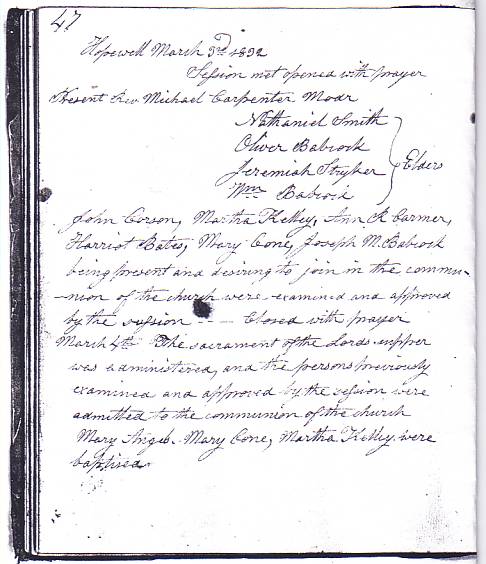 47
Hopewell March 3rd 1832
Session met opened with prayer
Present Rev Michael Carpenter Modr
Nathaniel Smith
Oliver Babcock
Jeremiah Stryker
Wm Babcock
Elders
John Corson, Martha Kelley, Ann R Carmer,
Harriot Bates, Mary Cone, Joseph M. Babcock
being present and desiring to join in the commu-
-nion of the church were examined and approved
by the session -- - Closed with prayer
March 4th The sacrament of the Lords supper
was administered, and the persons previously
examined and approved by the session were
admitted to the communion of the church
Mary Angel. Mary Cone, Martha Kelley were
baptised